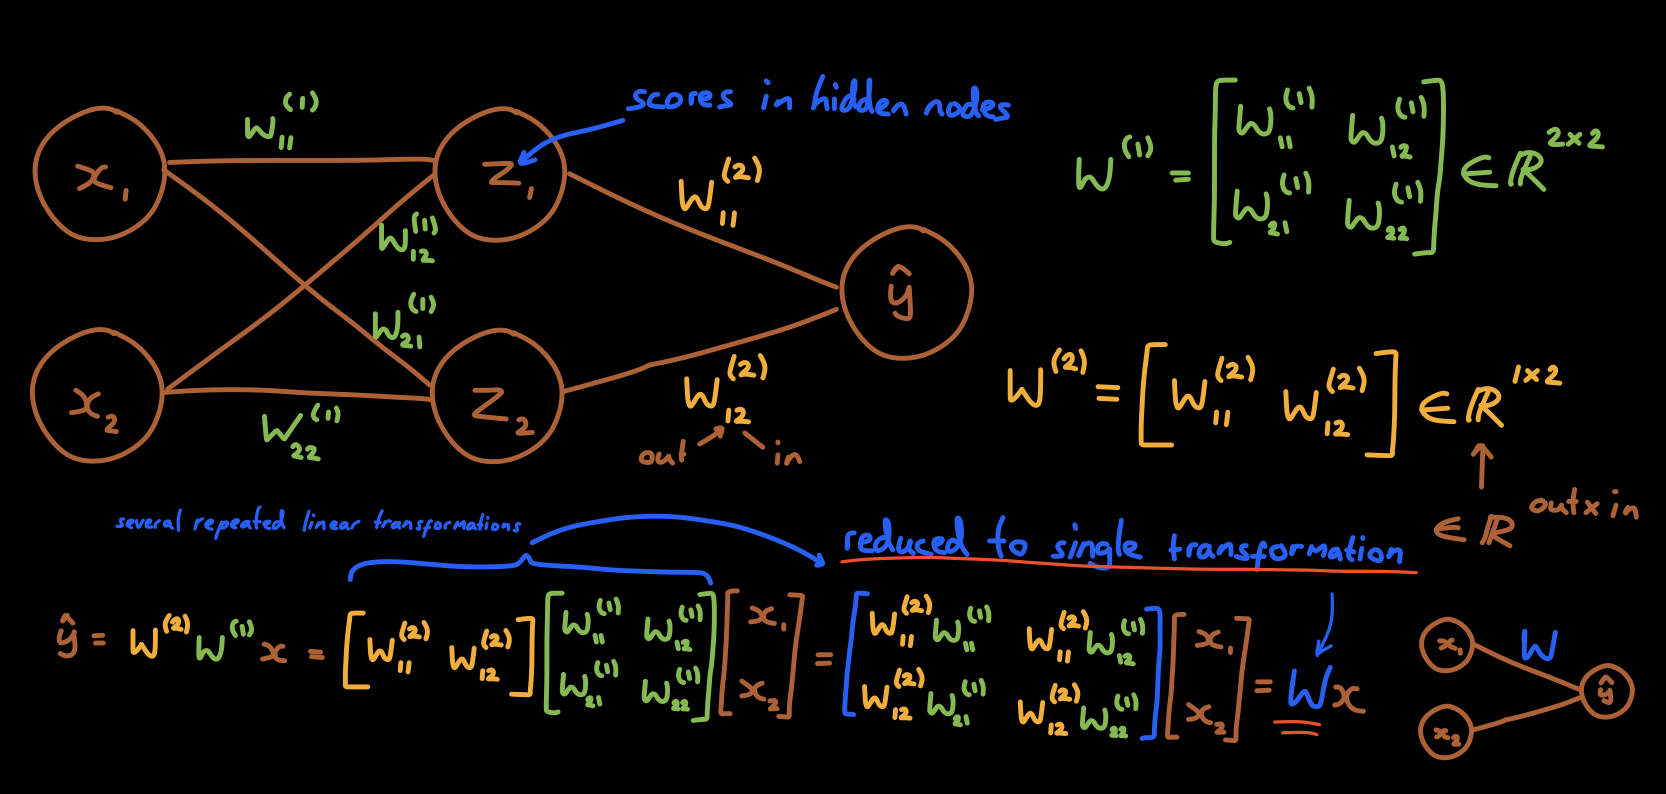 scores in hidden nodes
x₁
W₁₁⁽¹⁾
z₁
W₁₁⁽²⁾
W₁₂⁽¹⁾
ŷ
W₂₁⁽¹⁾
x₂
W₂₂⁽¹⁾
z₂
W₁₂⁽²⁾
out in
W⁽¹⁾ = [W₁₁⁽¹⁾ W₁₂⁽¹⁾
W₂₁⁽¹⁾ W₂₂⁽¹⁾] ∈ ℝ²ˣ²
W⁽²⁾ = [W₁₁⁽²⁾ W₁₂⁽²⁾] ∈ ℝ¹ˣ²
∈ ℝ^(out x in)
several repeated linear transformations
reduced to single transformation
ŷ = W⁽²⁾W⁽¹⁾x = [W₁₁⁽²⁾ W₁₂⁽²⁾] [W₁₁⁽¹⁾ W₁₂⁽¹⁾; W₂₁⁽¹⁾ W₂₂⁽¹⁾] [x₁; x₂] = [W₁₁⁽²⁾W₁₁⁽¹⁾ W₁₁⁽²⁾W₁₂⁽¹⁾; W₁₂⁽²⁾W₂₁⁽¹⁾ W₁₂⁽²⁾W₂₂⁽¹⁾] [x₁; x₂] = Wx
x₁
W
ŷ
x₂